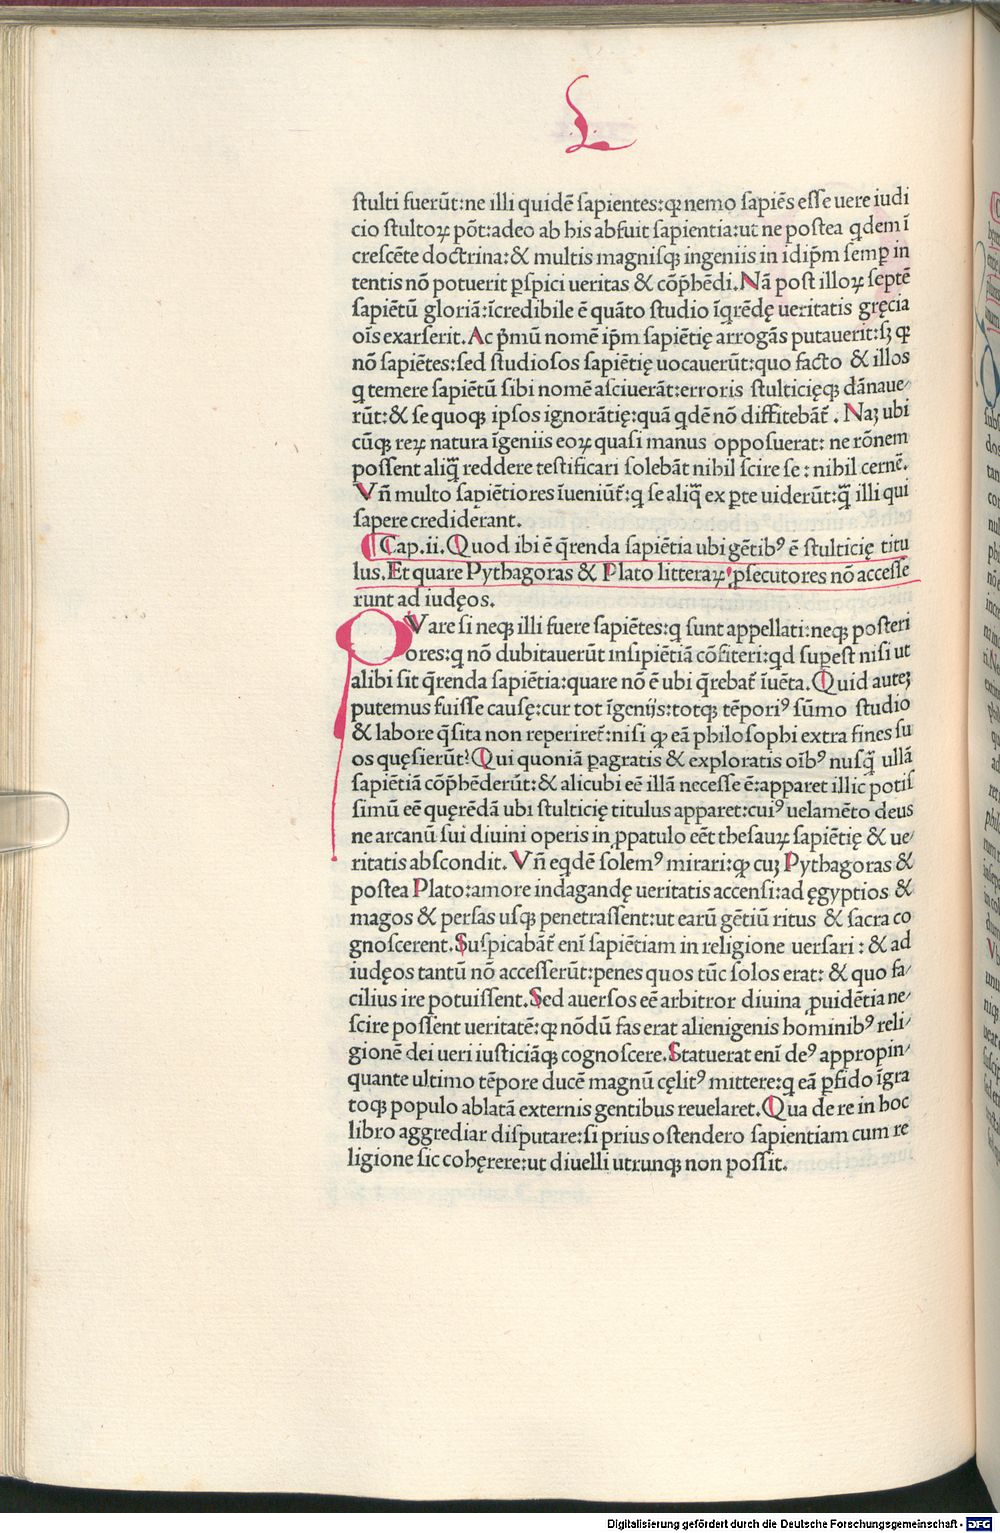 L
stulti fuerūt:ne illi quidē sapientes:qꝛ nemo sapiēs esse uere iudi
cio stultoꝝ pōt:adeo ab his abfuit sapientia:ut ne postea qdem ī
crescēte doctrina:& multis magnisqꝫ ingeniis in idip̄m semꝑ in
tentis nō potuerit ꝑspici ueritas & cōp̄hēdi.Nā post illoꝝ septē
sapiētū gloriā:īcredibile ē quāto studio īqrēdę ueritatis gręcia
oīs exarserit.Ac p̄mū nomē ip̄m sapiētię arrogās putauerit:sꝫ qꝛ
nō sapiētes:sed studiosos sapiētię uocauerūt:quo facto & illos
q temere sapiētū sibi nomē asciuerāt:erroris stulticięqꝫ dānaue⸗
rūt:& se quoqꝫ ipsos ignorātię:quā qdē nō diffitebāt̄. Naꝫ ubi
cūqꝫ reꝝ natura īgeniis eoꝝ quasi manus opposuerat: ne rōnem
possent aliq̄ reddere testificari solebāt nihil scire se: nihil cernē.
Vn̄ multo sapiētiores īueniūt̄:q se aliq̄ ex ꝑte uiderūt:q̄ illi qui
sapere crediderant.
Cap.ii.Quod ibi ē q̄renda sapiētia ubi gētibꝰ ē stulticię titu
lus.Et quare Pythagoras & Plato litteraꝝ ꝑsecutores nō accesse
runt ad iudęos.
QVare si neqꝫ illi fuere sapiētes:q sunt appellati:neqꝫ posteri
ores:q nō dubitauerūt insipiētiā cōfiteri:qd suꝑest nisi ut
alibi sit q̄renda sapiētia:quare nō ē ubi q̄rebat̄ īuēta.Quid auteꝫ
putemus fuisse causę:cur tot īgeniis:totqꝫ tēporiꝰ sūmo studio
& labore q̄sita non reperiret̄:nisi qꝛ eā philosophi extra fines su
os quęsierūt?Qui quoniā ꝑagratis & exploratis oībꝰ nusq̄ ullā
sapiētiā cōp̄hēderūt:& alicubi eē illā necesse ē:apparet illic potis
simū eē quęrēdā ubi stulticię titulus apparet:cuiꝰ uelamēto deus
ne arcanū sui diuini operis in ꝓpatulo eēt thesauꝝ sapiētię & ue⸗
ritatis abscondit.Vn̄ eqdē solemꝰ mirari:qꝛ cuꝫ Pythagoras &
postea Plato:amore indagandę ueritatis accensi:ad ęgyptios &
magos & persas usqꝫ penetrassent:ut earū gētiū ritus & sacra co
gnoscerent.Suspicabāt̄ enī sapiētiam in religione uersari: & ad
iudęos tantū nō accesserūt:penes quos tūc solos erat: & quo fa⸗
cilius ire potuissent.Sed auersos eē arbitror diuina ꝓuidētia ne⸗
scire possent ueritatē:qꝛ nōdū fas erat alienigenis hominibꝰ reli⸗
gionē dei ueri iusticiāqꝫ cognoscere.Statuerat enī deꝰ appropin⸗
quante ultimo tēpore ducē magnū cęlitꝰ mittere:q eā ꝑfido īgra
toqꝫ populo ablatā externis gentibus reuelaret.Qua de re in hoc
libro aggrediar disputare:si prius ostendero sapientiam cum re
ligione sic cohęrere:ut diuelli utrunqꝫ non possit.
Digitalisierung gefördert durch die Deutsche Forschungsgemeinschaft - DFG